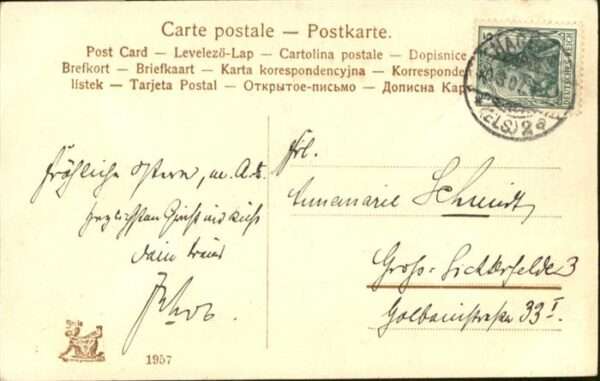 Carte postale — Postkarte.
Post Card — Levelező-Lap — Cartolina postale — Dopisnice
Brefkort — Briefkaart — Karta korespondencyjna — Korresponden
lístek — Tarjeta Postal — Открытое-письмо — Дописна Кар
HAG
(ELS) 2a
Fröhliche Ostern, m. A.
herzlichsten Gruß und Kuß
dein
Jakob
Frl.
Annemarie Schmidt,
Gross-Lichterfelde 3
Holbeinstraße 33 I.
1957